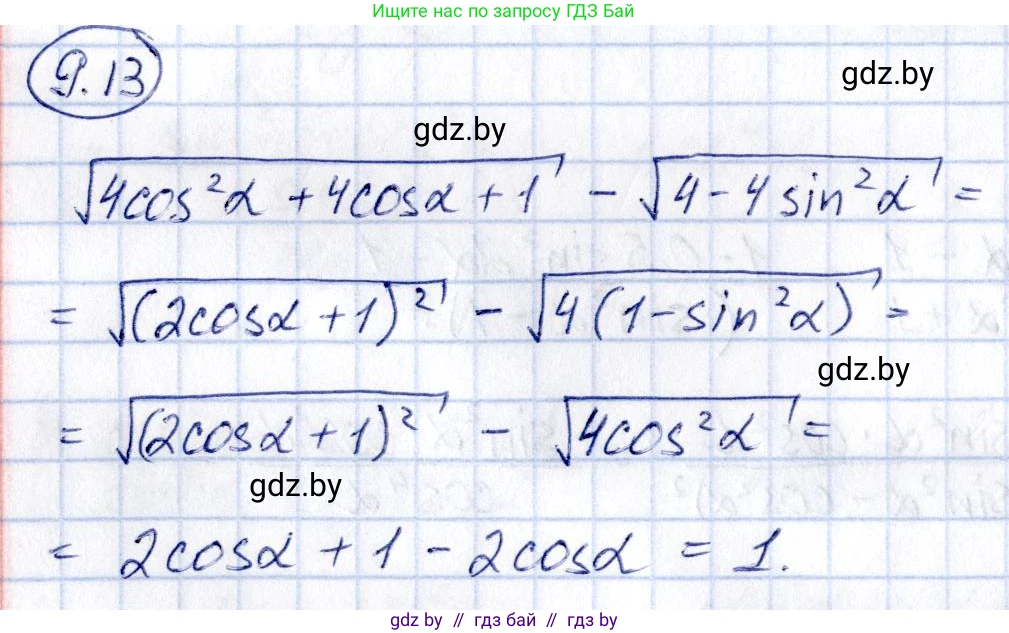 Ищите нас по запросу ГДЗ Бай
9.13
gdz.by
gdz.by
√(4cos²α + 4cosα + 1) − √(4 − 4 sin²α) =
= √((2cosα + 1)²) − √(4(1 − sin²α)) =
gdz.by
= √((2cosα + 1)²) − √(4cos²α) =
gdz.by
= 2cosα + 1 − 2cosα = 1.
gdz by // гдз бай // гдз by